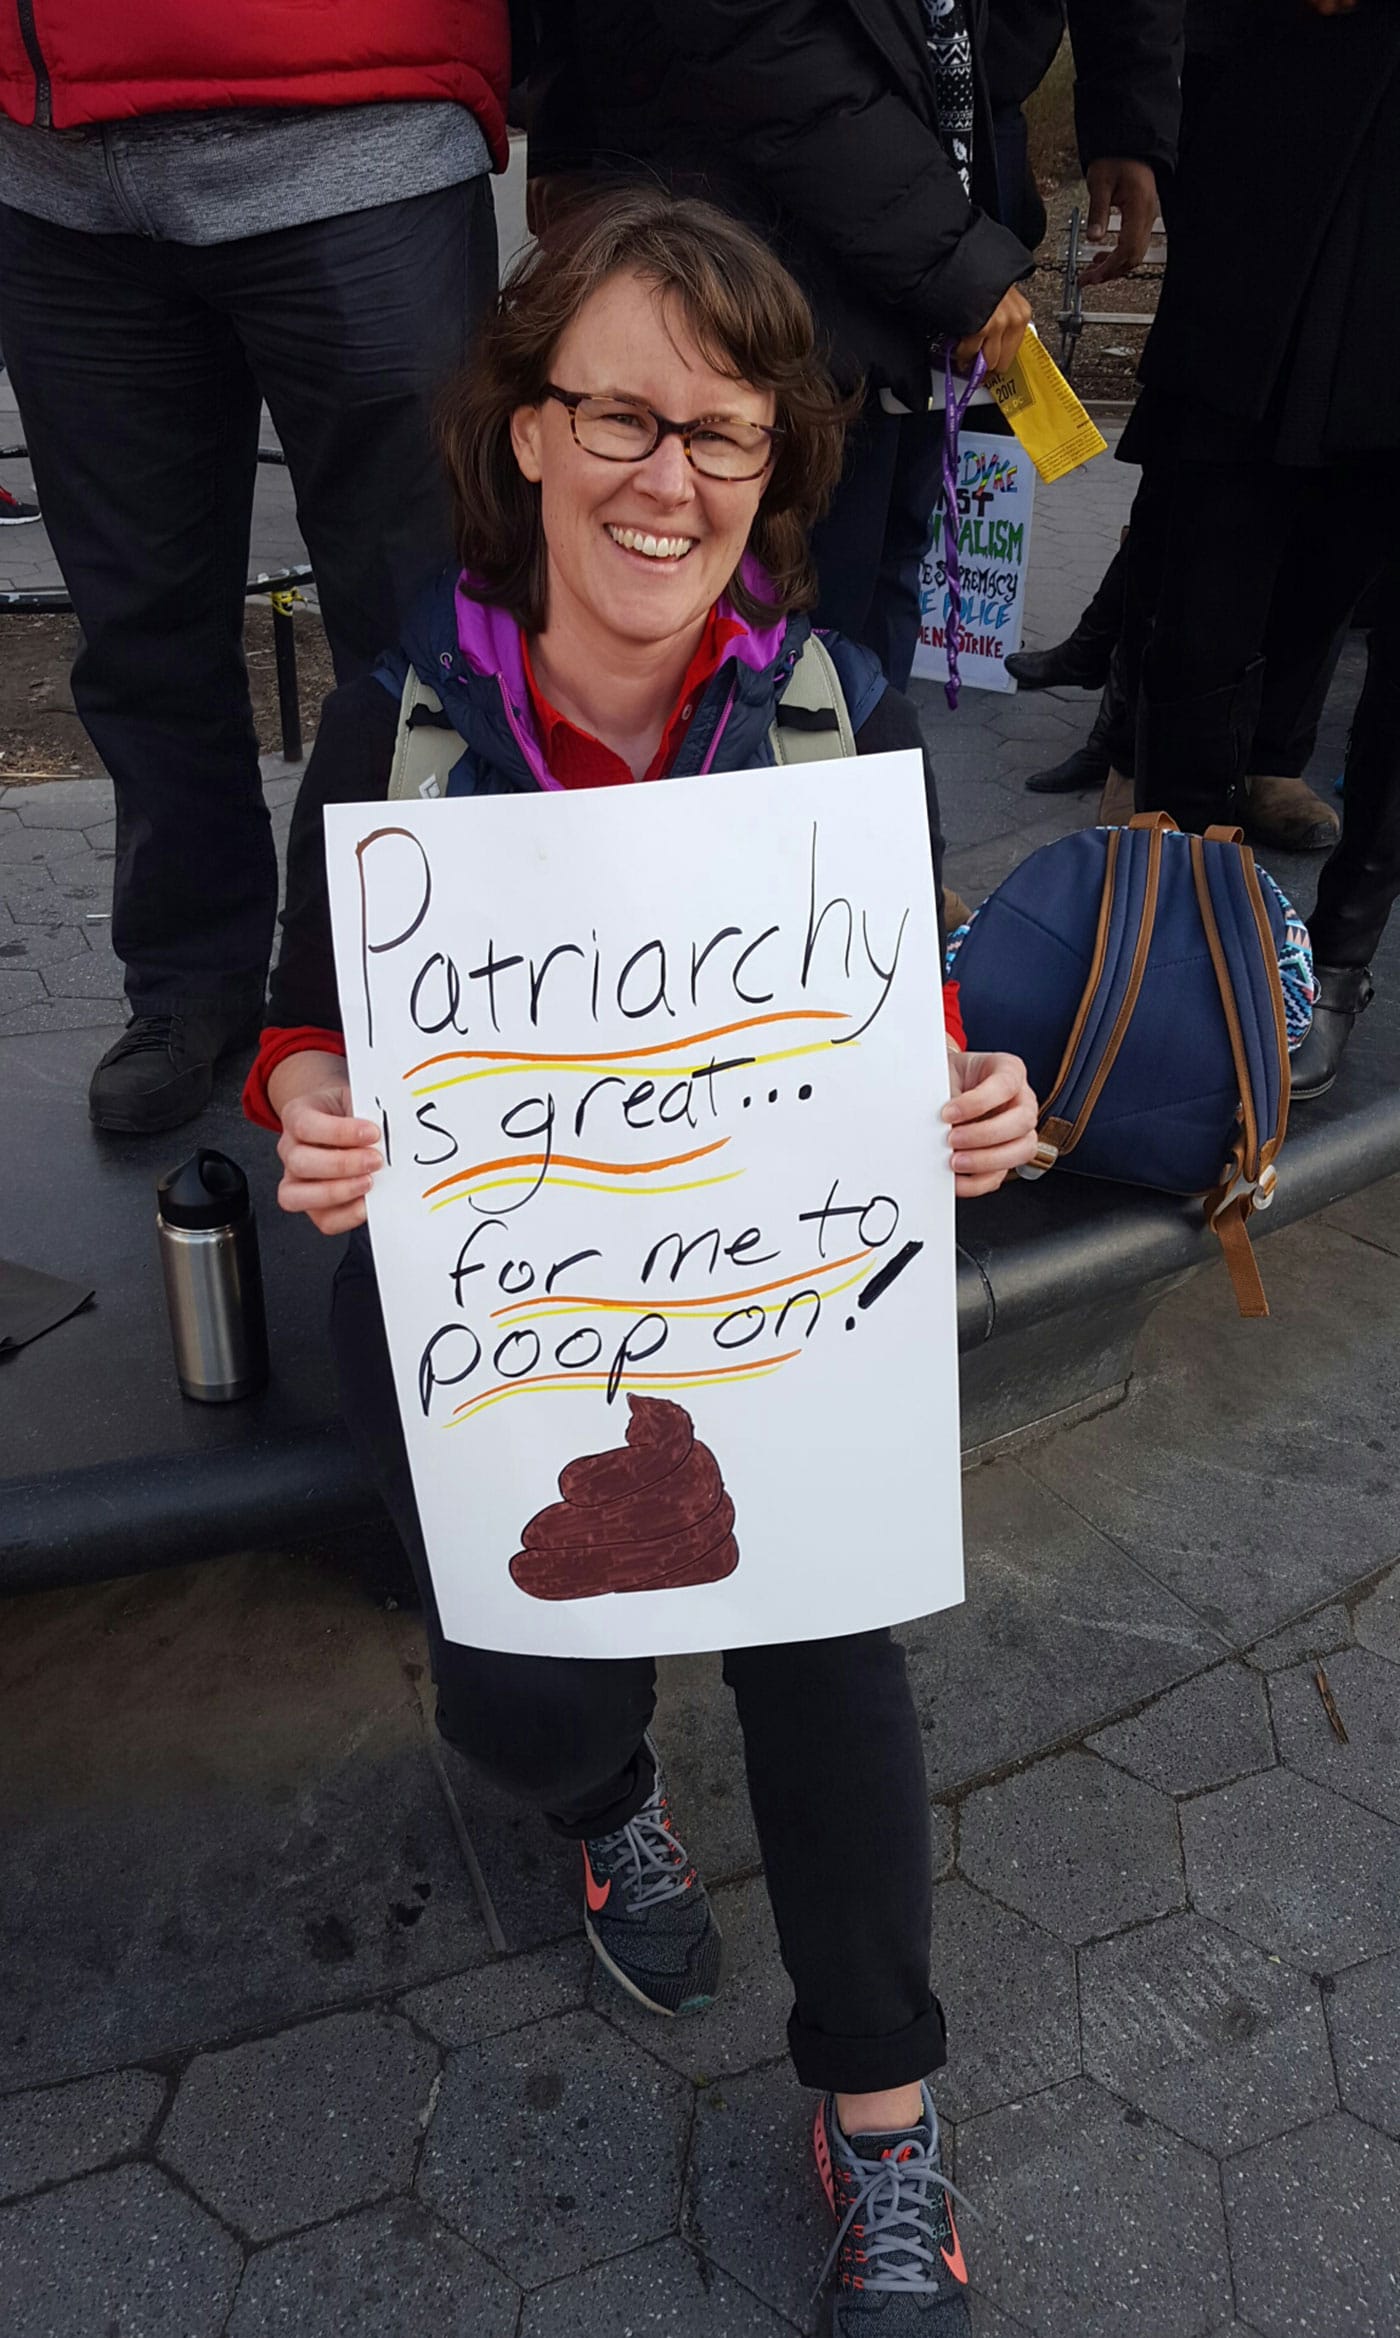 Patriarchy
is great...
for me to
poop on!
2017
DYKE
ALISM
SUPREMACY
POLICE
STRIKE
NIKE